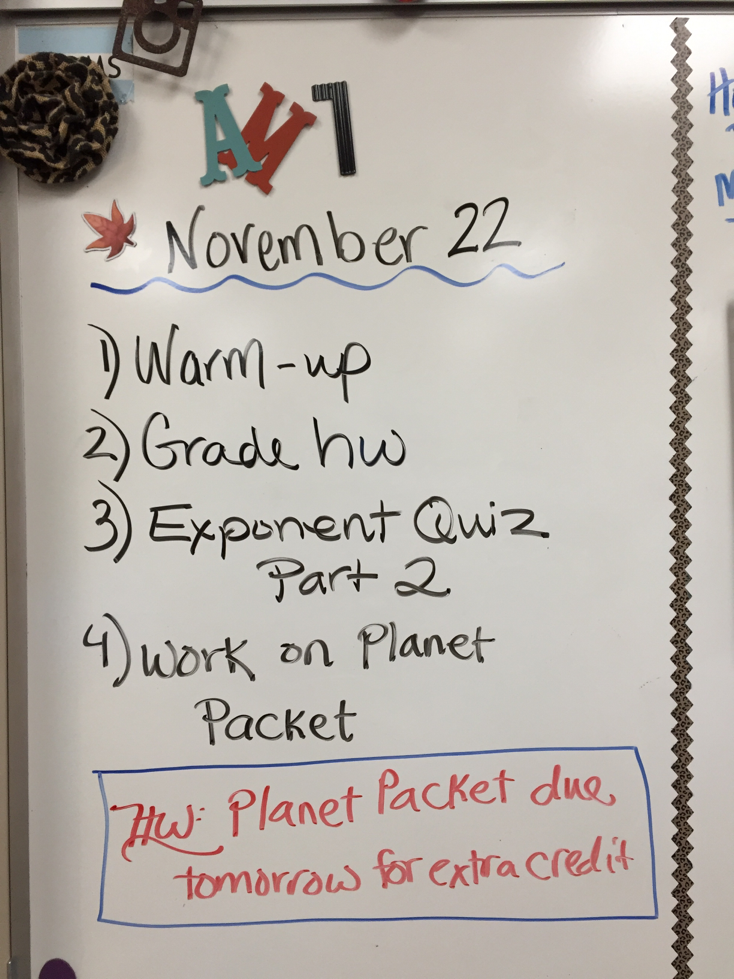 AM 1
November 22
1) Warm-up
2) Grade hw
3) Exponent Quiz
Part 2
4) Work on Planet
Packet
HW: Planet Packet due
tomorrow for extra credit